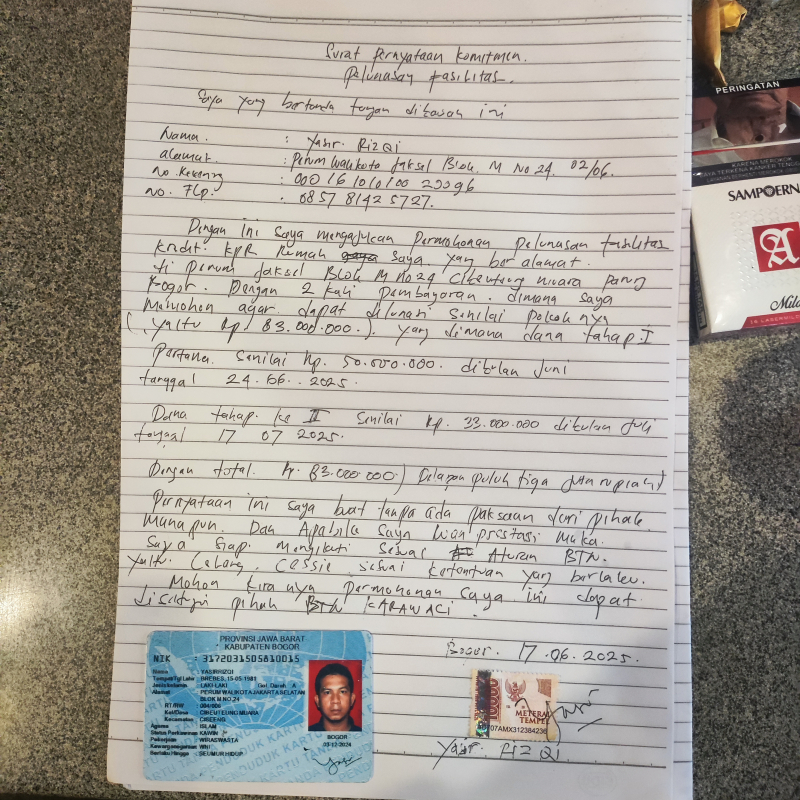 Surat pernyataan komitmen.
Pelunasan fasilitas.
Saya yang bertanda tangan dibawah ini
Nama. : Yasir RizQi
alamat. : Perum Walikota Jaksel Blok. M No 24. 02/06.
No. Rekening : 000 16 1010100 23096
No. Tlp. : 0857 8142 5727.
Dengan ini Saya mengajukan Permohonan Pelunasan fasilitas
Kredit: KPR Rumah Saya yang ber alamat.
di perum Jaksel Blok M No 24 Cibeuteung muara parung
Bogor. Dengan 2 kali Pembayaran. dimana saya
Memohon agar dapat dilunasi Senilai pokok nya
(yaitu Rp 83.000.000.) yang dimana dana tahap. I
Pertama. Senilai Rp. 50.000.000. dibulan Juni
tanggal 24.06.2025.
Dana tahap. ke II Senilai Rp. 33.000.000 dibulan Juli
tanggal 17 07 2025.
Dengan total. Rp. 83.000.000.) Delapan puluh tiga juta rupiah)
Pernyataan ini saya buat tanpa ada paksaan dari pihak
Manapun. Dan Apabila Saya Wan prestasi Maka.
Saya Siap. Mengikuti Sesuai Aturan BTN.
yaitu. Lelang, Cessie sesuai ketentuan yang berlaku.
Mohon kira nya permohonan saya ini dapat
disetujui pihak BTN KARAWACI.
Bogor. 17.06.2025.
Yasir. RizQi
PROVINSI JAWA BARAT
KABUPATEN BOGOR
NIK : 3172031505810015
Nama : YASIRRIZQI
Tempat/Tgl Lahir : BREBES, 15-05-1981
Jenis kelamin : LAKI-LAKI Gol. Darah : A
Alamat : PERUM WALIKOTA JAKARTA SELATAN
BLOK M NO.24
RT/RW : 004/006
Kel/Desa : CIBEUTEUNG MUARA
Kecamatan : CISEENG
Agama : ISLAM
Status Perkawinan : KAWIN
Pekerjaan : WIRASWASTA
Kewarganegaraan : WNI
Berlaku Hingga : SEUMUR HIDUP
BOGOR
03-12-2024
10000
METERAI
TEMPEL
07AMX312384236
PERINGATAN
KARENA MEROKOK
SAMPOERN
A
Mild